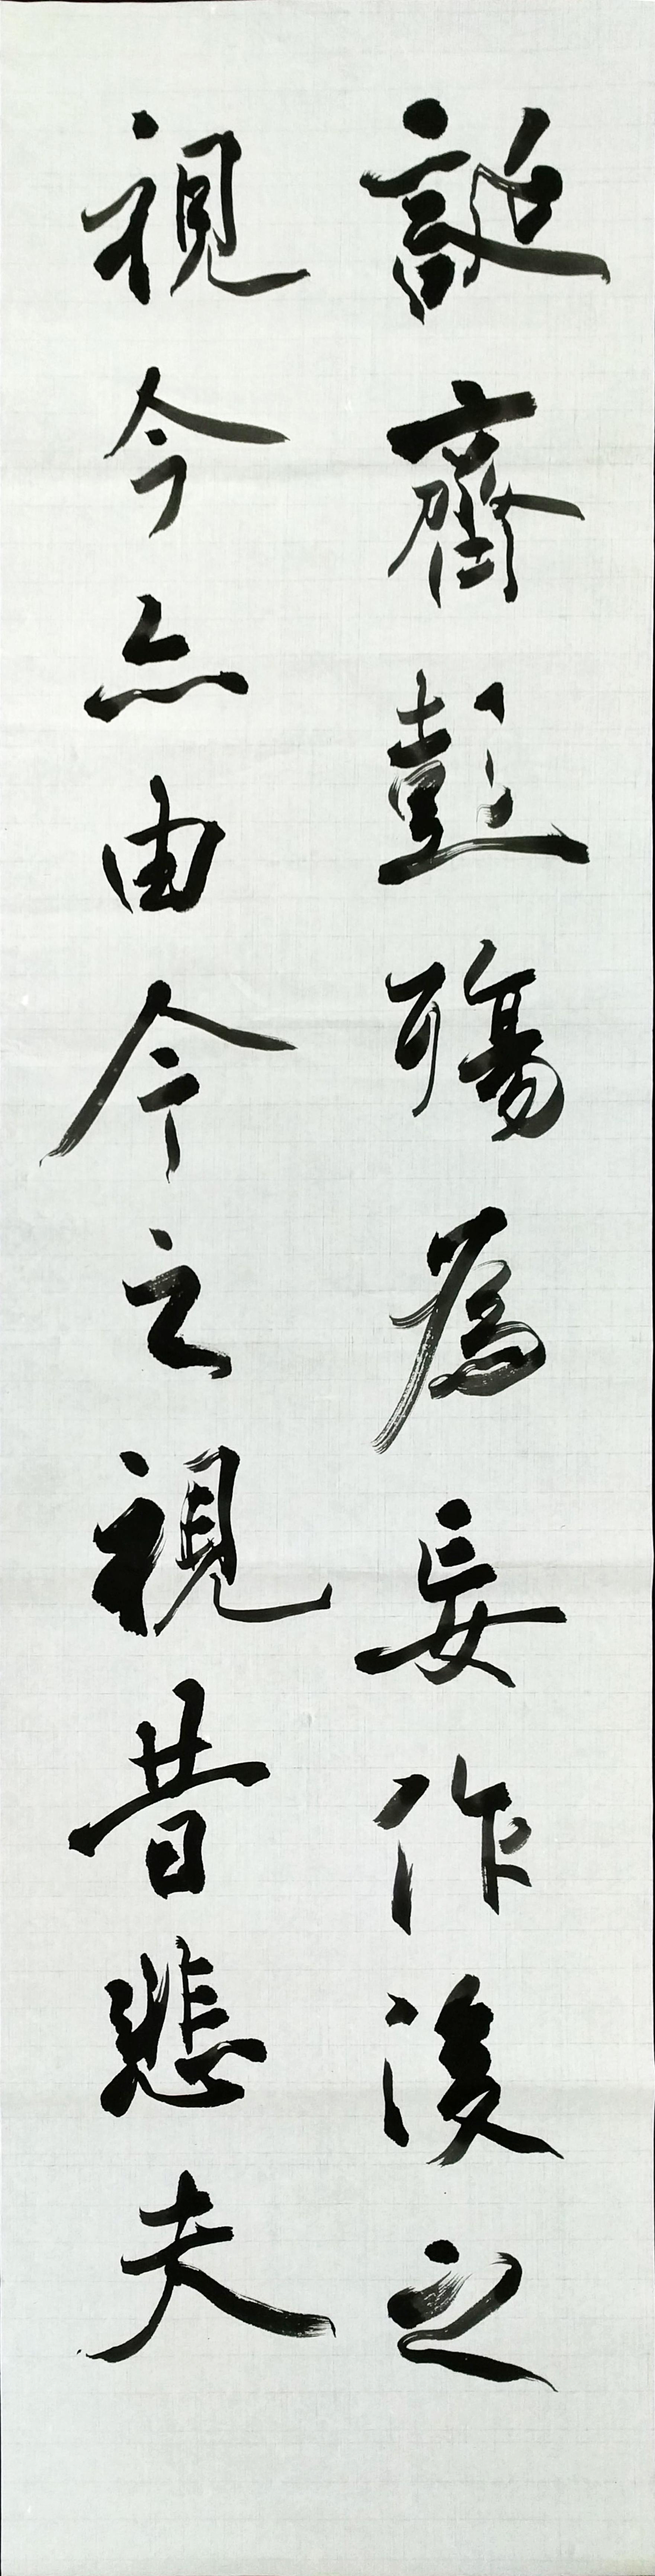 誕齊彭殤爲妄作後之
視今亦由今之視昔悲夫